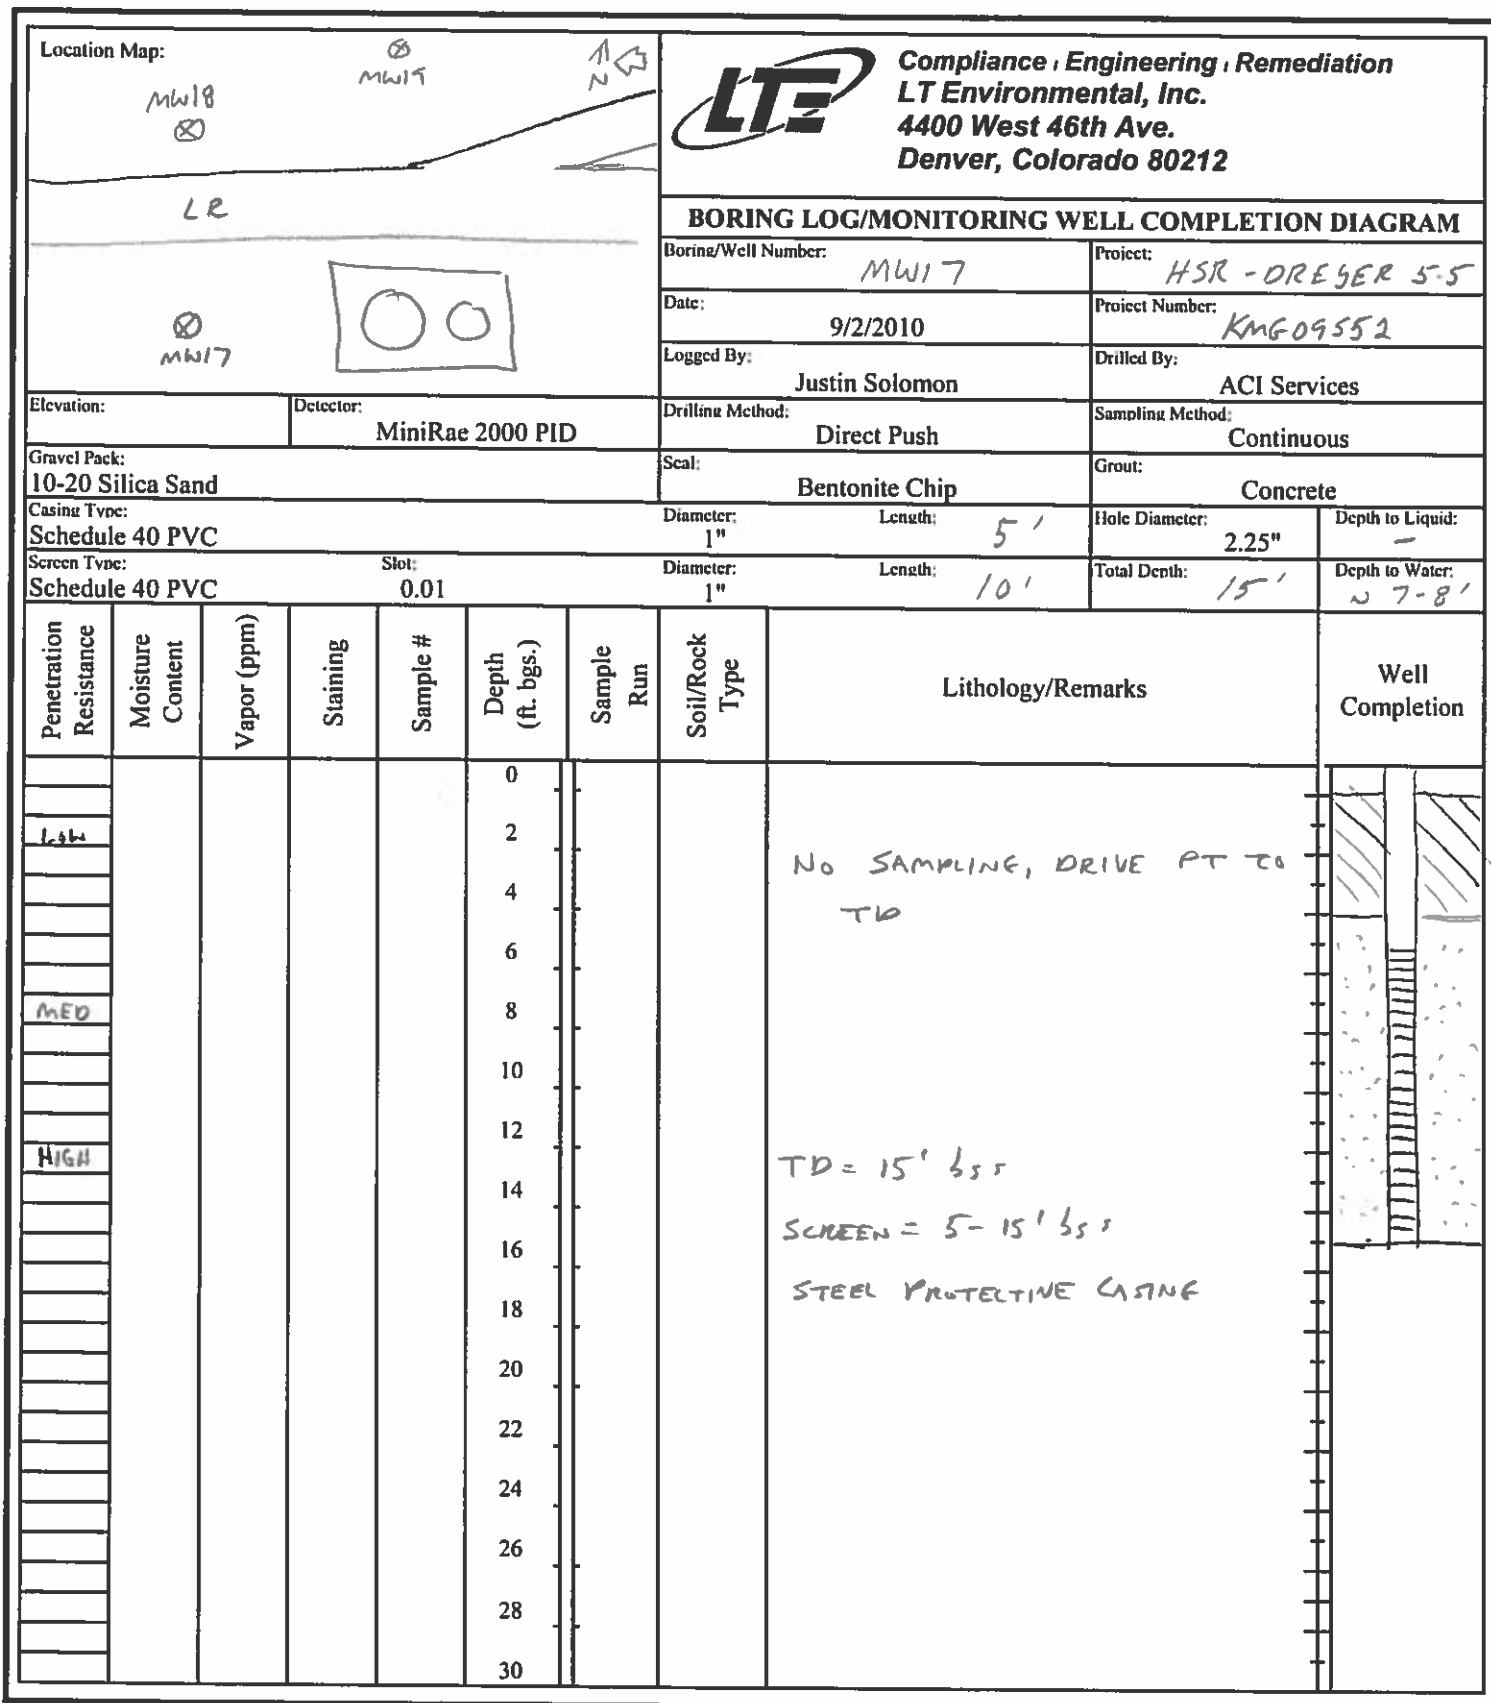 Location Map:
MW19
N
MW18
LR
MW17
LTE
Compliance Engineering Remediation
LT Environmental, Inc.
4400 West 46th Ave.
Denver, Colorado 80212
BORING LOG/MONITORING WELL COMPLETION DIAGRAM
Boring/Well Number: MW17
Project: HSR - DREYER 5-5
Date: 9/2/2010
Project Number: KMG09552
Logged By: Justin Solomon
Drilled By: ACI Services
Elevation:
Detector: MiniRae 2000 PID
Drilling Method: Direct Push
Sampling Method: Continuous
Gravel Pack: 10-20 Silica Sand
Seal: Bentonite Chip
Grout: Concrete
Casing Type: Schedule 40 PVC
Diameter: 1"
Length: 5'
Hole Diameter: 2.25"
Depth to Liquid: -
Screen Type: Schedule 40 PVC
Slot: 0.01
Diameter: 1"
Length: 10'
Total Depth: 15'
Depth to Water: ~ 7-8'
Penetration Resistance
Moisture Content
Vapor (ppm)
Staining
Sample #
Depth (ft. bgs.)
Sample Run
Soil/Rock Type
Lithology/Remarks
Well Completion
0
LOW
2
NO SAMPLING, DRIVE PT TO
4
TD
6
MED
8
10
12
HIGH
TD = 15' bgs
14
SCREEN = 5-15' bgs
16
STEEL PROTECTIVE CASING
18
20
22
24
26
28
30